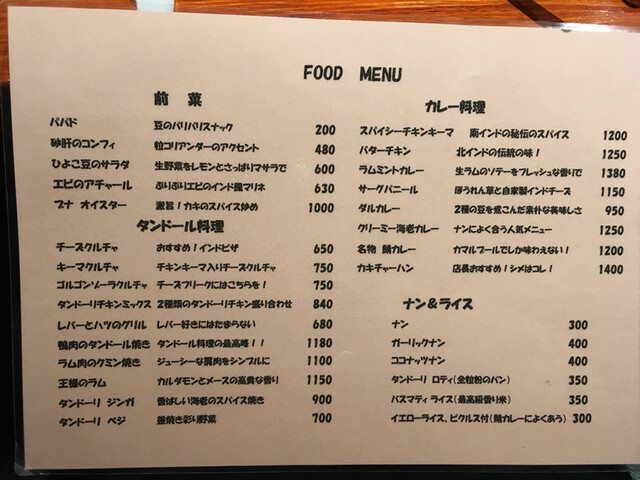 FOOD MENU
前菜
パパド 豆のパリパリスナック 200
砂肝のコンフィ 粒コリアンダーのアクセント 480
ひよこ豆のサラダ 生野菜をレモンとさっぱりマサラで 600
エビのアチャール ぷりぷりエビのインド風マリネ 630
ブナ オイスター 激旨!カキのスパイス炒め 1000
タンドール料理
チーズクルチャ おすすめ!インドピザ 650
キーマクルチャ チキンキーマ入りチーズクルチャ 750
ゴルゴンゾーラクルチャ チーズフリークにはこちらを! 750
タンドーリチキンミックス 2種類のタンドーリチキン盛り合わせ 840
レバーとハツのグリル レバー好きにはたまらない 680
鴨肉のタンドール焼き タンドール料理の最高峰!! 1180
ラム肉のクミン焼き ジューシーな肩肉をシンプルに 1100
王様のラム カルダモンとメースの高貴な香り 1150
タンドーリ ジンガ 香ばしい海老のスパイス焼き 900
タンドーリ ベジ 釜焼き彩り野菜 700
カレー料理
スパイシーチキンキーマ 南インドの秘伝のスパイス 1200
バターチキン 北インドの伝統の味! 1250
ラムミントカレー 生ラムのソテーをフレッシュな香りで 1380
サーグパニール ほうれん草と自家製インドチーズ 1150
ダルカレー 2種の豆を煮こんだ素朴な美味しさ 950
クリーミー海老カレー ナンによく合う人気メニュー 1250
名物 鯖カレー カマルプールでしか味わえない! 1200
カキチャーハン 店長おすすめ!シメはコレ! 1400
ナン&ライス
ナン 300
ガーリックナン 400
ココナッツナン 400
タンドーリ ロティ(全粒粉のパン) 350
バスマティ ライス(最高級香り米) 350
イエローライス、ピクルス付(鯖カレーによくあう) 300